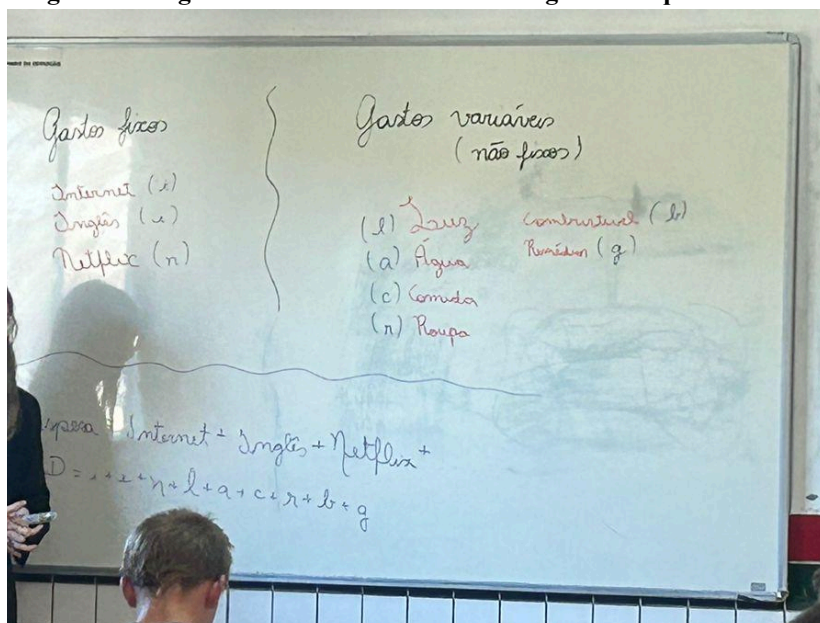 Gastos fixos
Internet (i)
Inglês
Netflix (n)
Gastos variáveis
(não fixos)
(l) Luz
(a) Água
(c) Comida
(r) Roupa
Combustível (b)
Remédios (g)
Internet + Inglês + Netflix +
D = + n + l + a + c + r + b + g